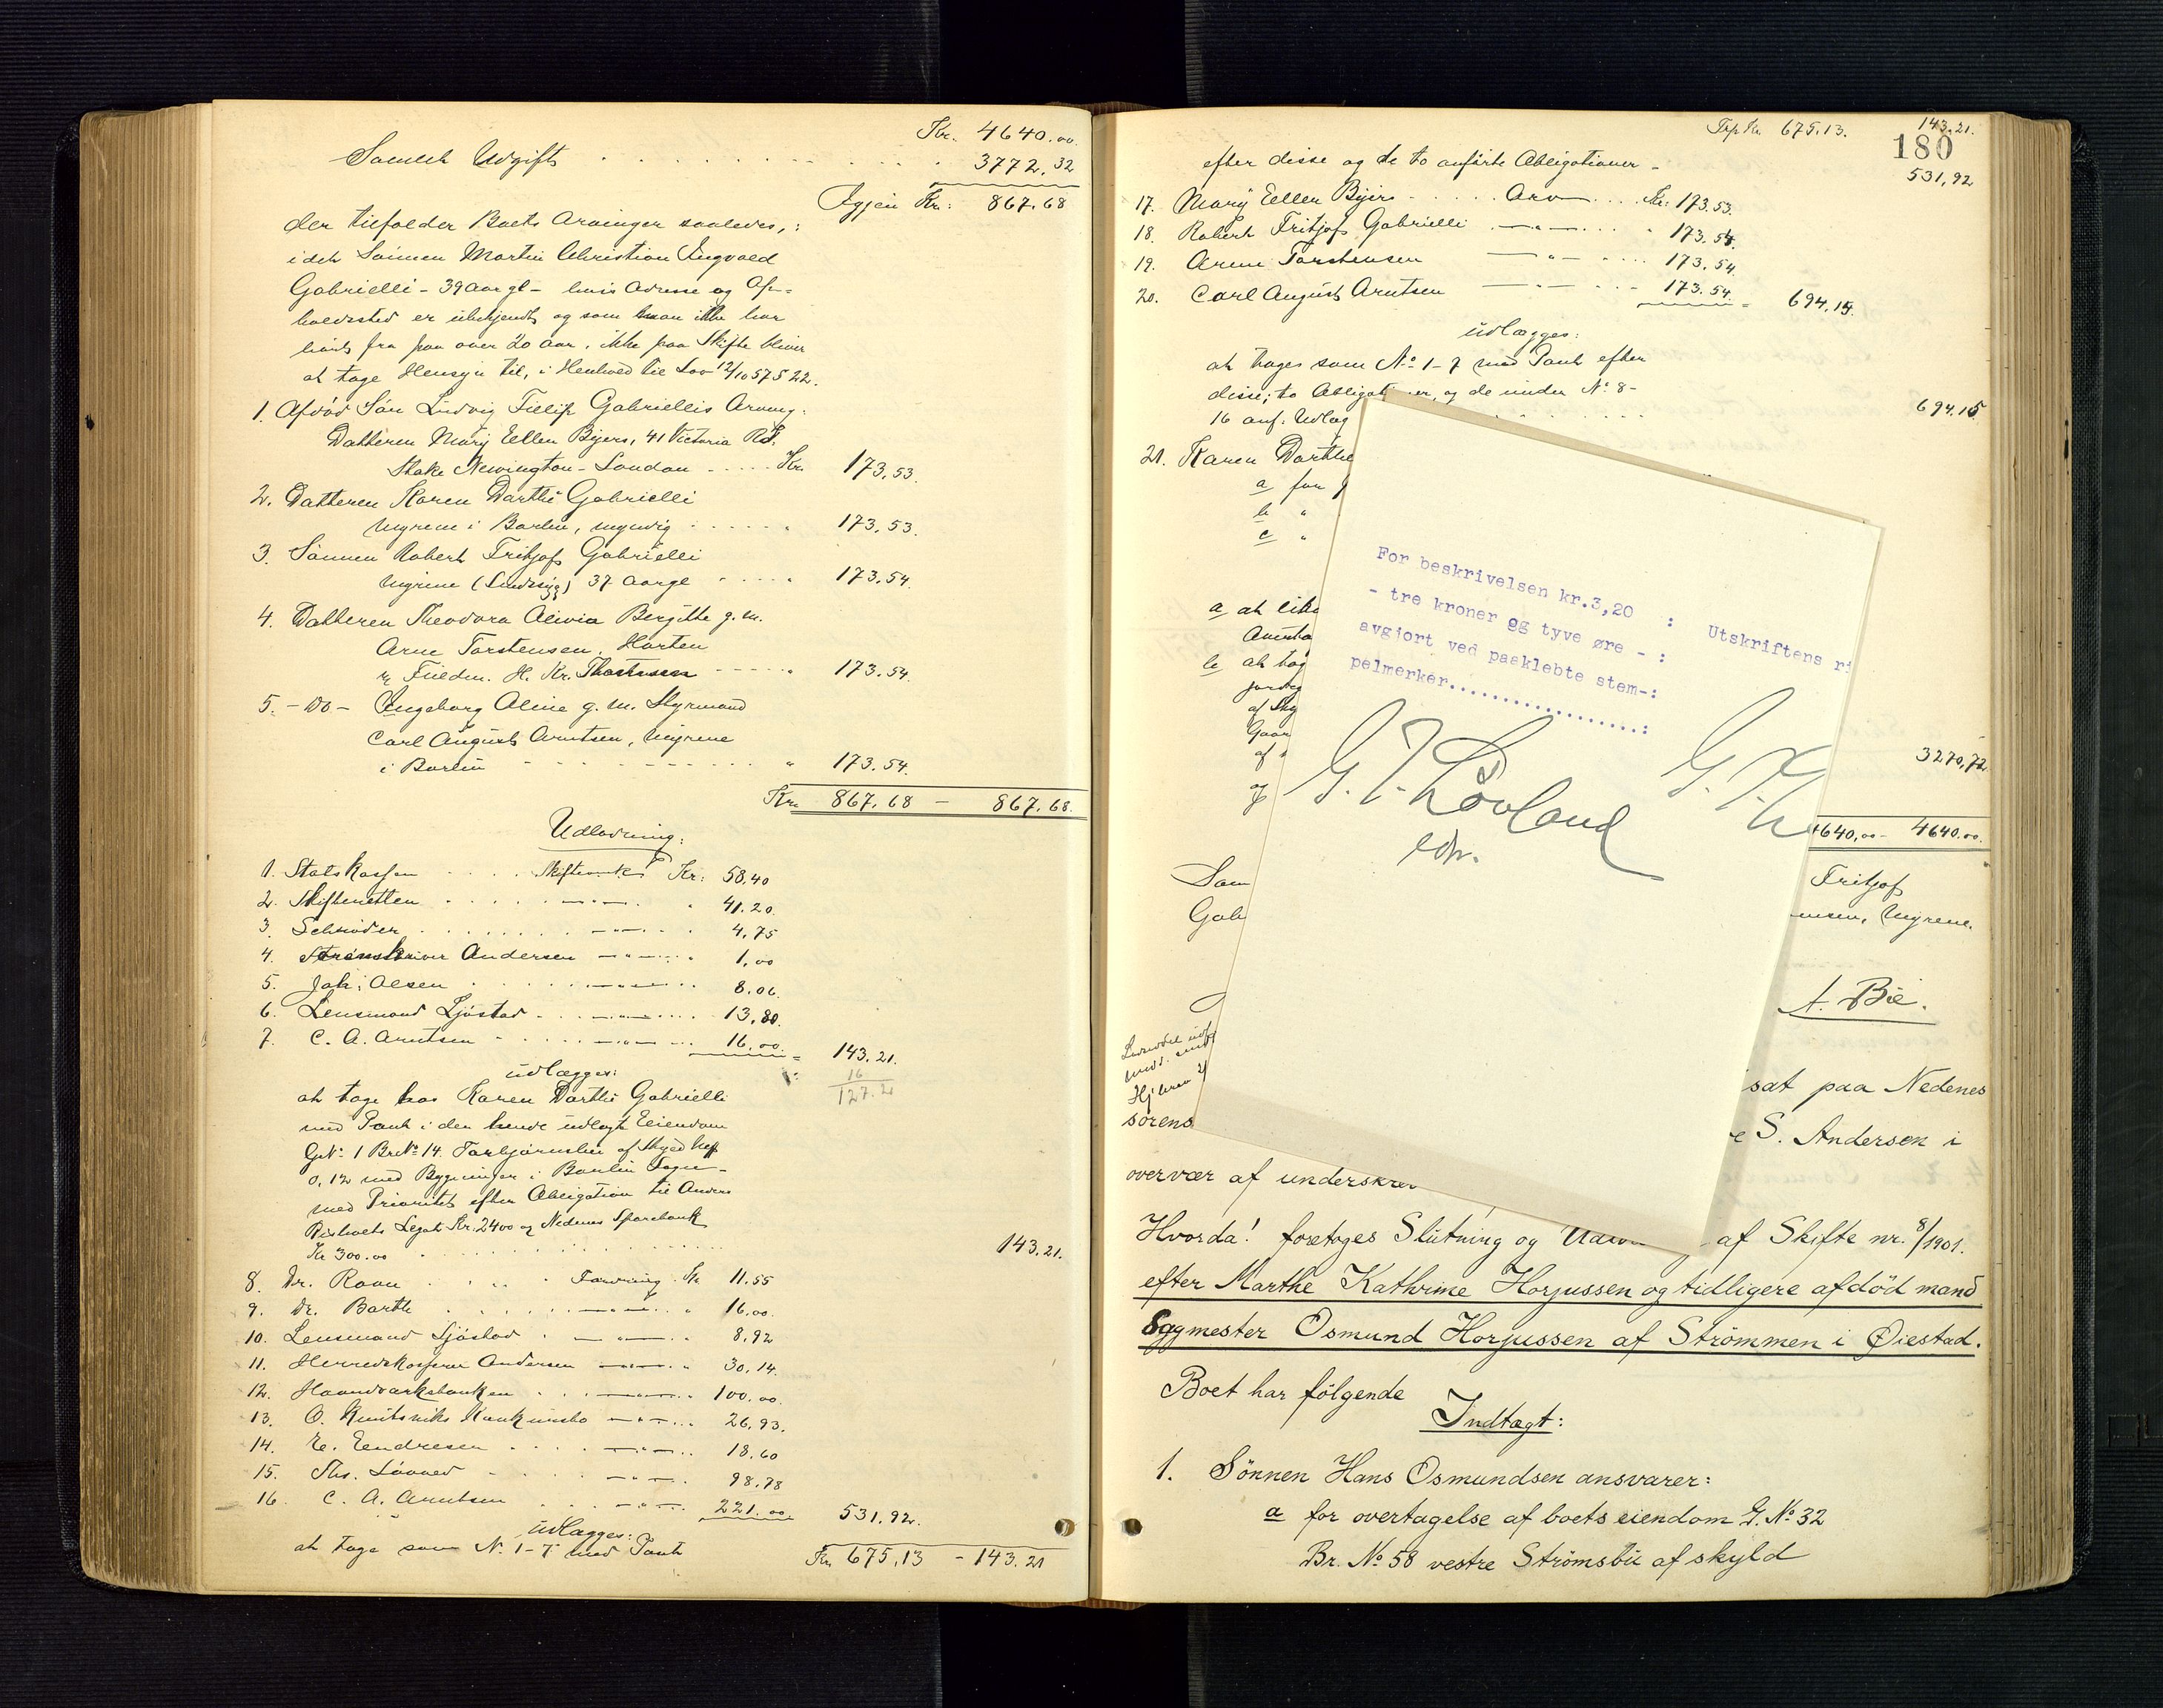 Kr. 4640.00
Samlet Udgift . . . . . . . . . . . 3772.32
Igjen Kr: 867.68
der tilfalder Boets Arvinger saaledes,:
idet Sönnen Martin Christian Engvald
Gabrielli - 39 Aar gl - hvis Adresse og Op-
holdssted er ubekjendt og som man ikke har
hört fra paa over 20 Aar, ikke paa Skifte bliver
at tage Hensyn til, i Henhold til Lov 12/10 57 § 22.
1. Afdöd Sön Ludvig Fillip Gabriellis Arving:
Datteren Mary Ellen Byers, 41 Victoria Rd.
Stoke Newington - London . . . . Kr. 173.53.
2. Datteren Karen Dorthe Gabrielli
Myrene i Barbu, myndig . . . . . " 173.53.
3. Sönnen Robert Fritjof Gabrielli
Myrene 37 Aar gl . . . . " 173.54.
4. Datteren Theodora Olivia Bergitte g. m.
Arne Torstensen, Horten
H. Kr. Thorstensen . . . . " 173.54.
5. - Do - Ingeborg Oline g. m. Styrmand
Carl August Arntsen, Myrene
i Barbu . . . . . . . . . . " 173.54.
Kr. 867.68 - 867.68.
Udlodning:
1. Statskassen . . . . Skifteomk. Kr: 58.40
2. Skifteretten . . . . . —"— . " 41.20.
3. Schröder . . . . . . —"— . . 4.75
4. Andersen —"— . . 1.00
5. Joh: Olsen . . . . . —"— . . 8.06.
6. Lensmand Sjöstad . . . —"— . . 13.80.
7. C. A. Arntsen . . . . —"— . . 16.00. = 143.21.
16
127.2
udlægges:
at tage hos Karen Dorthe Gabrielli
med Pant i den hende udlagte Eiendom
GNo. 1 BrNo. 14. af Skyld
0,12 med Bygninger i Barbu Sogn -
med Prioritet efter Obligation til Anders
Legat Kr. 2400 og Nedenes Sparebank
Kr 300.00 . . . . . . . . . . . . 143.21.
8. Dr. Raan . . . . Fordring Kr 11.55
9. Dr. Barth . . . . . —"— . " 16.00.
10. Lensmand Sjöstad . —"— . " 8.92
11. Herredskasserer Andersen —"— . " 30.14.
12. Haandværksbanken . . —"— . . 100.00.
13. O. —"— . . . 26.93.
14. E. Eendresen . . . . —"— . . 18.60
15. Ths. . . . . —"— . 98.78
16. C. A. Arntsen . . . —"— . . 221.00. 531.92.
udlægges:
at tage som No. 1-7 med Pant Kr 675.13 - 143.21
Trp Kr. 675.13. 143.21.
180
efter disse og de to anförte Obligationer - 531.92
17. Mary Ellen Byers . . . . . Arv . . . . Kr. 173.53.
18. Robert Fritjof Gabrielli . —"— . . . " 173.54.
19. Arne Torstensen —"— . . . . 173.54.
20. Carl August Arntsen —"— . . - 173.54. = 694.15.
udlægges:
at tages som No. 1-7 med Pant efter
disse; to Obligat er, og de under No. 8-
16 anf. Udlæg . . . . . . . 694.15
21. Karen Dorthe
a for
b "
c "
a at
b at tag
af
3270.72
4640.00 - 4640.00.
For beskrivelsen kr.3,20 :
- tre kroner og tyve øre - :
avgjort ved paaklebte stem-:
pelmerker...................:
Utskriftens ri
G. T. Lövland
G. T. L
Sam
Gab
Fritjof
Myrene.
A. Bie.
sat paa Nedenes
sorens
e S. Andersen i
overvær af underskrev
Hvorda! foretoges Slutning og Udlo af Skifte nr. 8/1901.
efter Marthe Kathrine Horjussen og tidligere afdöd mand
Byggmester Osmund Horjussen af Strömmen i Øiestad.
Boet har fölgende
Indtægt:
1. Sönnen Hans Osmundsen ansvarer:
a for overtagelse af boets eiendom G. No 32
Br. No 58 vestre Strömsbu af skyld